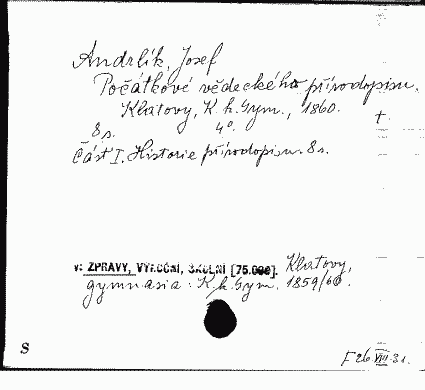 Andrlík, Josef
Počátkové vědeckého přírodopisu.
Klatovy, K. k. Gym., 1860. t.
8 s. 4°.
Část I. Historie přírodopisu. 8 s.
v: ZPRÁVY, VÝROČNÍ, ŠKOLNÍ [75.000]. Klatovy,
gymnasia: K. k. Gym. 1859/60.
S
F 26 VIII 31.